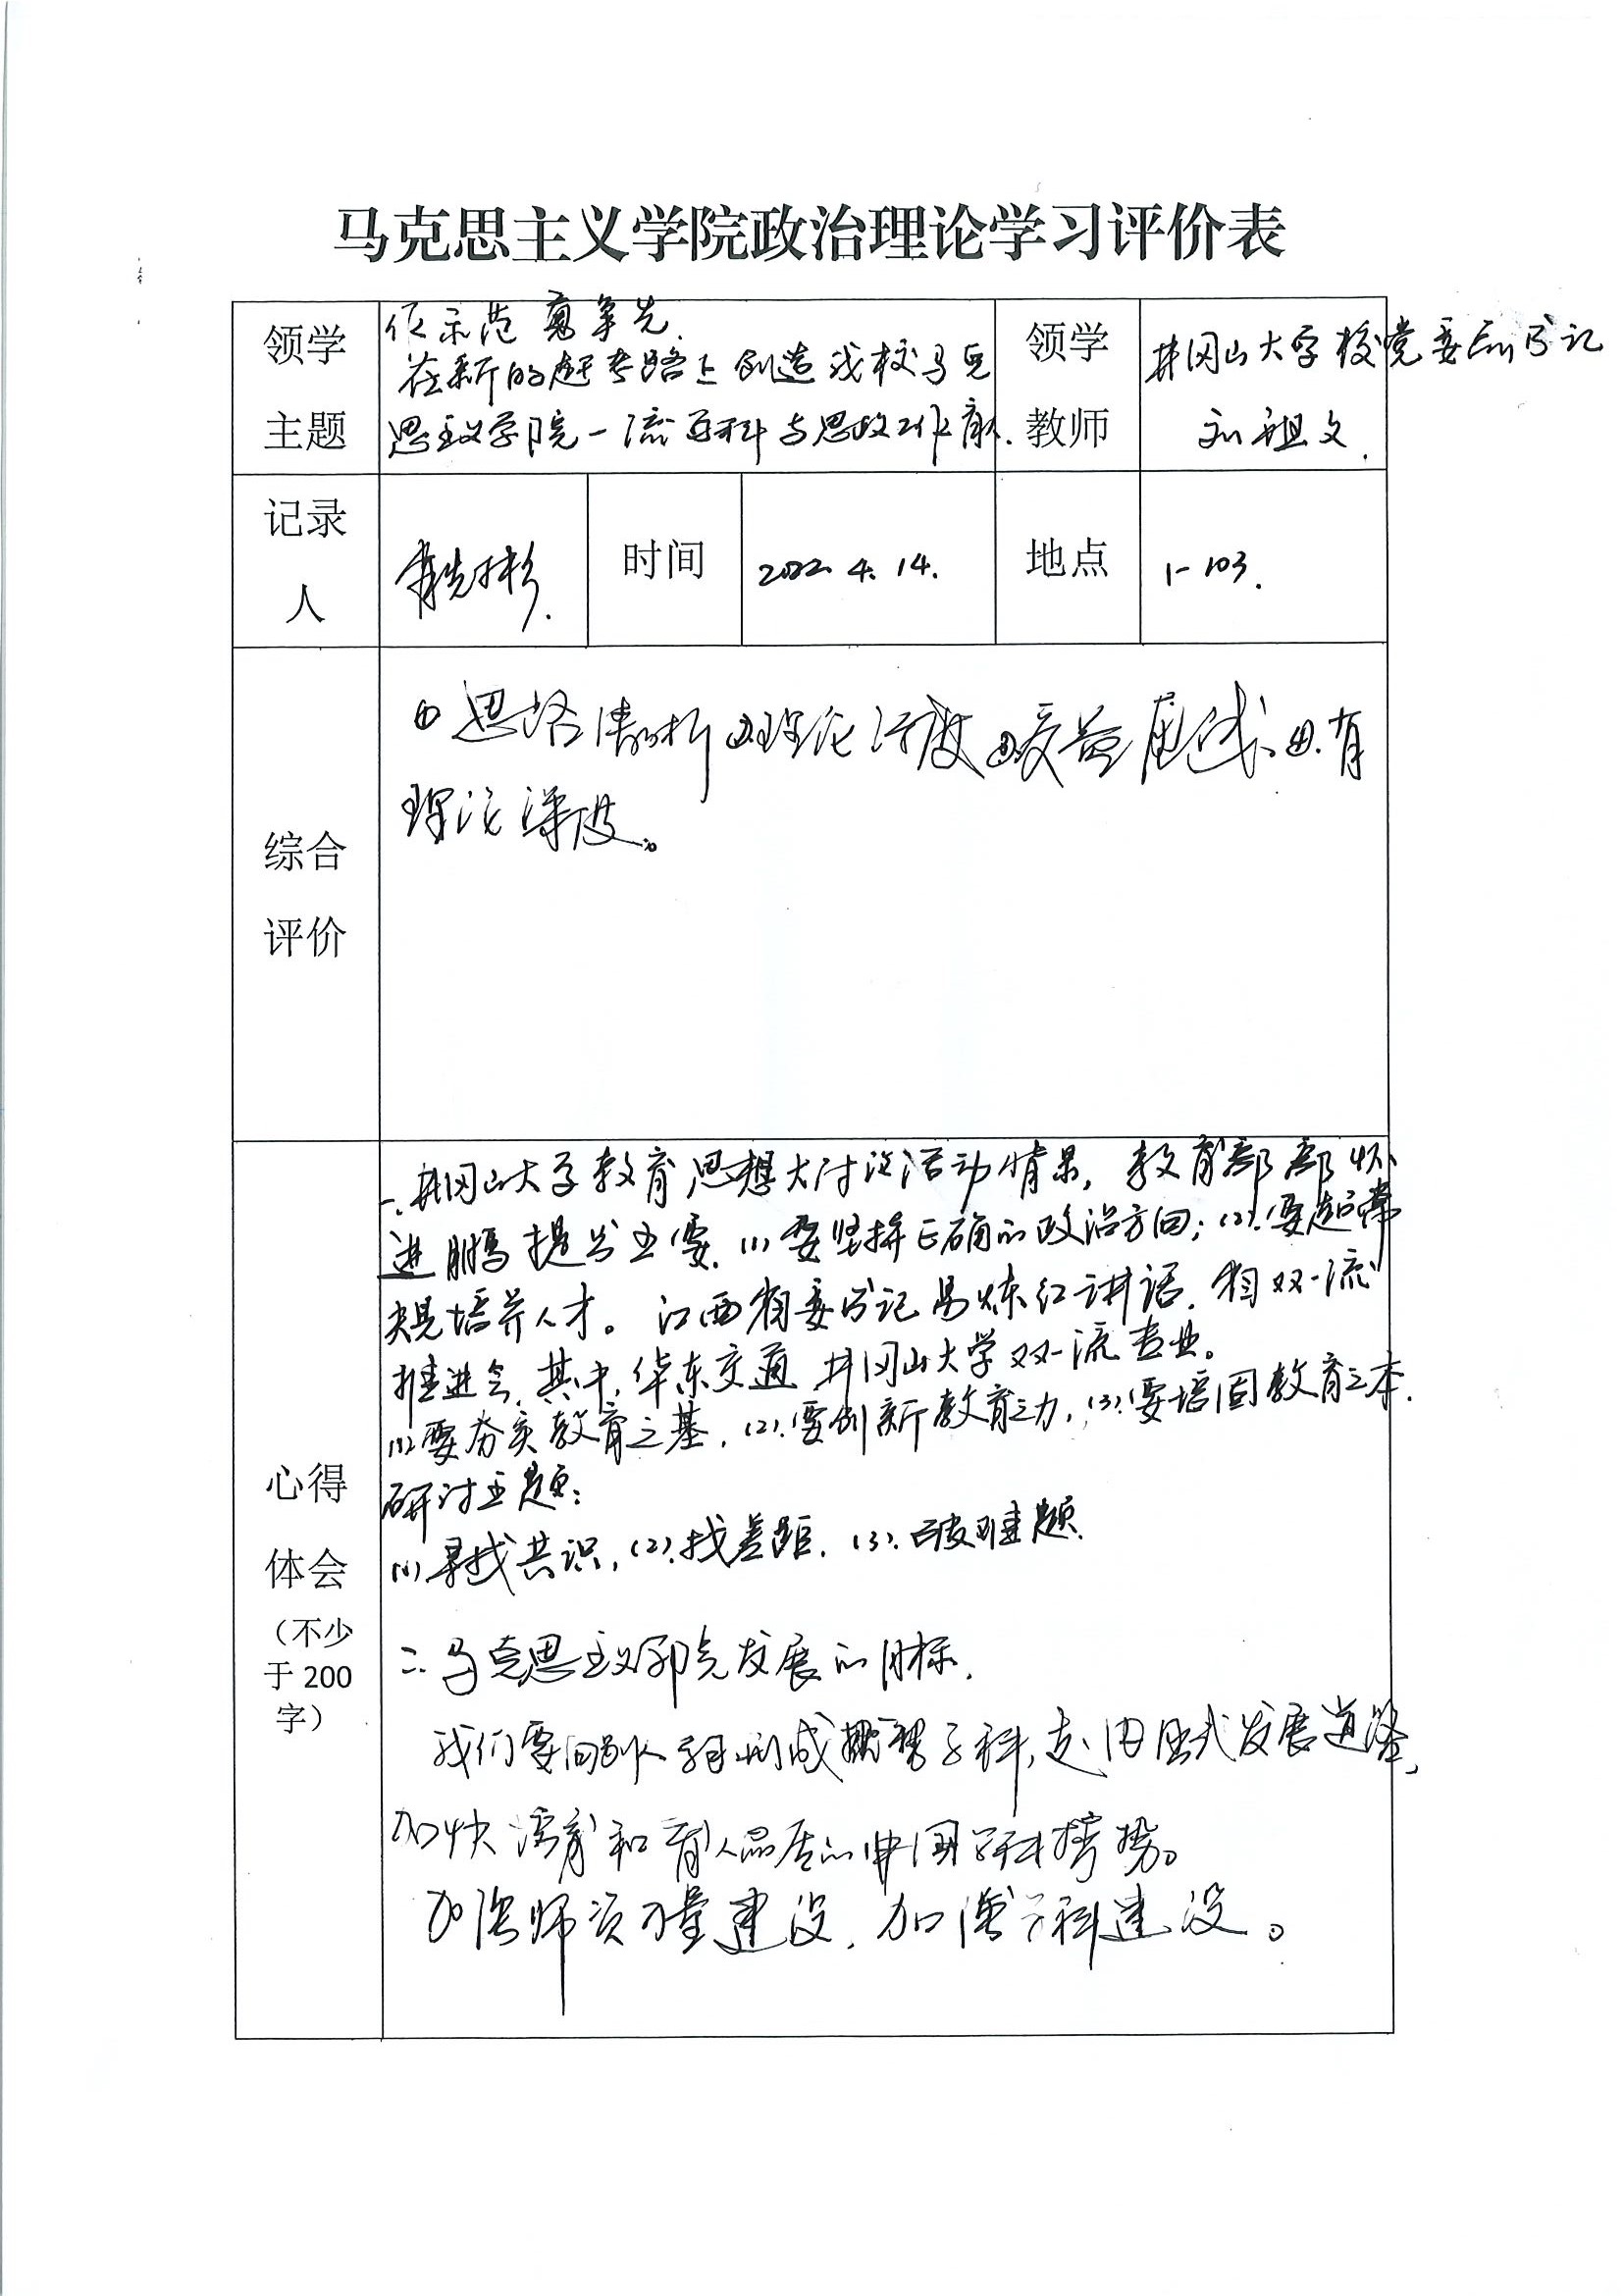 马克思主义学院政治理论学习评价表
领学主题
作示范 勇争先.
在新的赶考路上创造我校马克
思主义学院一流学科与思政工作
领学教师
井冈山大学校党委副书记
刘祖文.
记录人
时间
2022. 4. 14.
地点
1-103.
综合评价
① 思路清晰 ②理论 ④.有
理论深度。
心得体会（不少于200字）
一.井冈山大学教育思想大讨论活动情景, 教育部部长怀
进鹏提出主要. (1) 要坚持正确的政治方向; (2). 要超常
规培养人才。江西省委书记易炼红讲话. 双一流
推进会, 其中, 华东交通 井冈山大学双一流专业。
(1).要夯实教育之基, (2).要创新教育之力, (3).要培固教育之本.
研讨主题:
(1) 寻找共识, (2).找差距. (3).破难题.
二. 马克思主义学院发展的目标.
我们要 学科, 走内 式发展道路,
加快 和育人
加强师资力量建设, 加强学科建设。